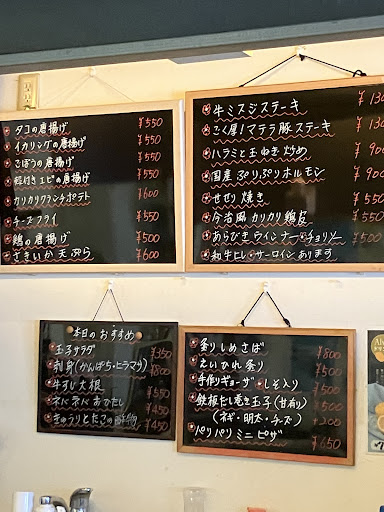 タコの唐揚げ ¥550
イカリングの唐揚げ ¥550
ごぼうの唐揚げ ¥550
殻付きエビの唐揚げ ¥550
カリカリクランチポテト ¥600
チーズフライ ¥550
鶏の唐揚げ ¥500
さきいか天ぷら ¥600
牛ミスジステーキ ¥130
ごく厚!マテラ豚ステーキ ¥130
ハラミと玉ねぎ炒め ¥100
国産ぷりぷりホルモン ¥900
せせり焼き ¥550
今治風カリカリ鶏皮 ¥550
あらびきウインナー・チョリソー ¥500
和牛ヒレ・サーロインあります
本日のおすすめ
玉子サラダ ¥350
刺身(かんぱち・ヒラマサ) ¥800
牛すじ大根 ¥550
ネバネバおひたし ¥450
きゅうりとたこの酢物 ¥450
炙りしめさば ¥800
えいひれ炙り ¥500
手作りギョーザ しそ入り ¥500
鉄板だし巻き玉子(甘有り) ¥500
(ネギ・明太・チーズ) +200
パリパリミニピザ ¥650